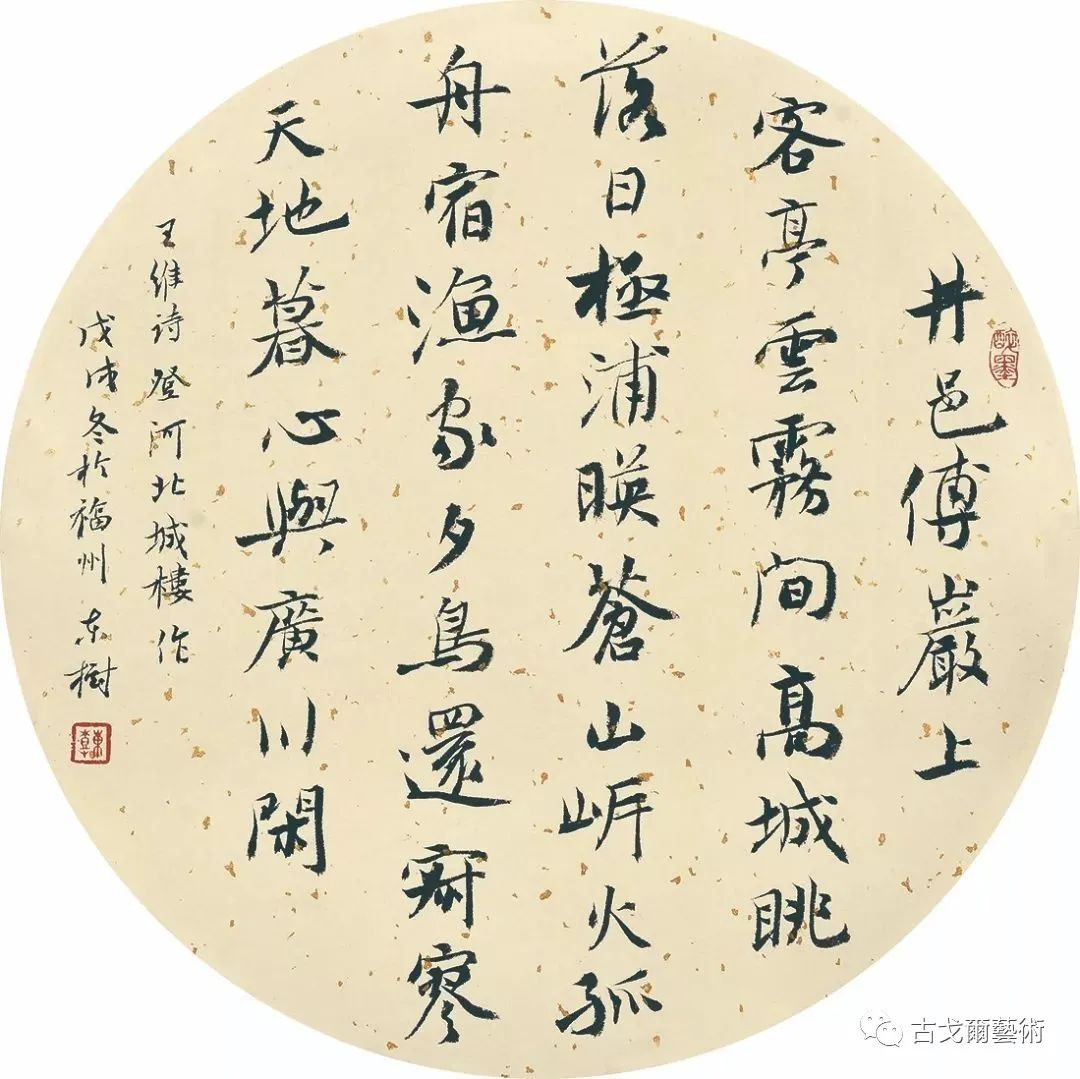 井邑傅巖上
客亭雲霧間高城眺
落日極浦暎蒼山岍火孤
舟宿漁家夕鳥還寂寥
天地暮心與廣川閑
王維诗登河北城樓作
戊戌冬於福州东樹
醉墨
古戈爾藝術